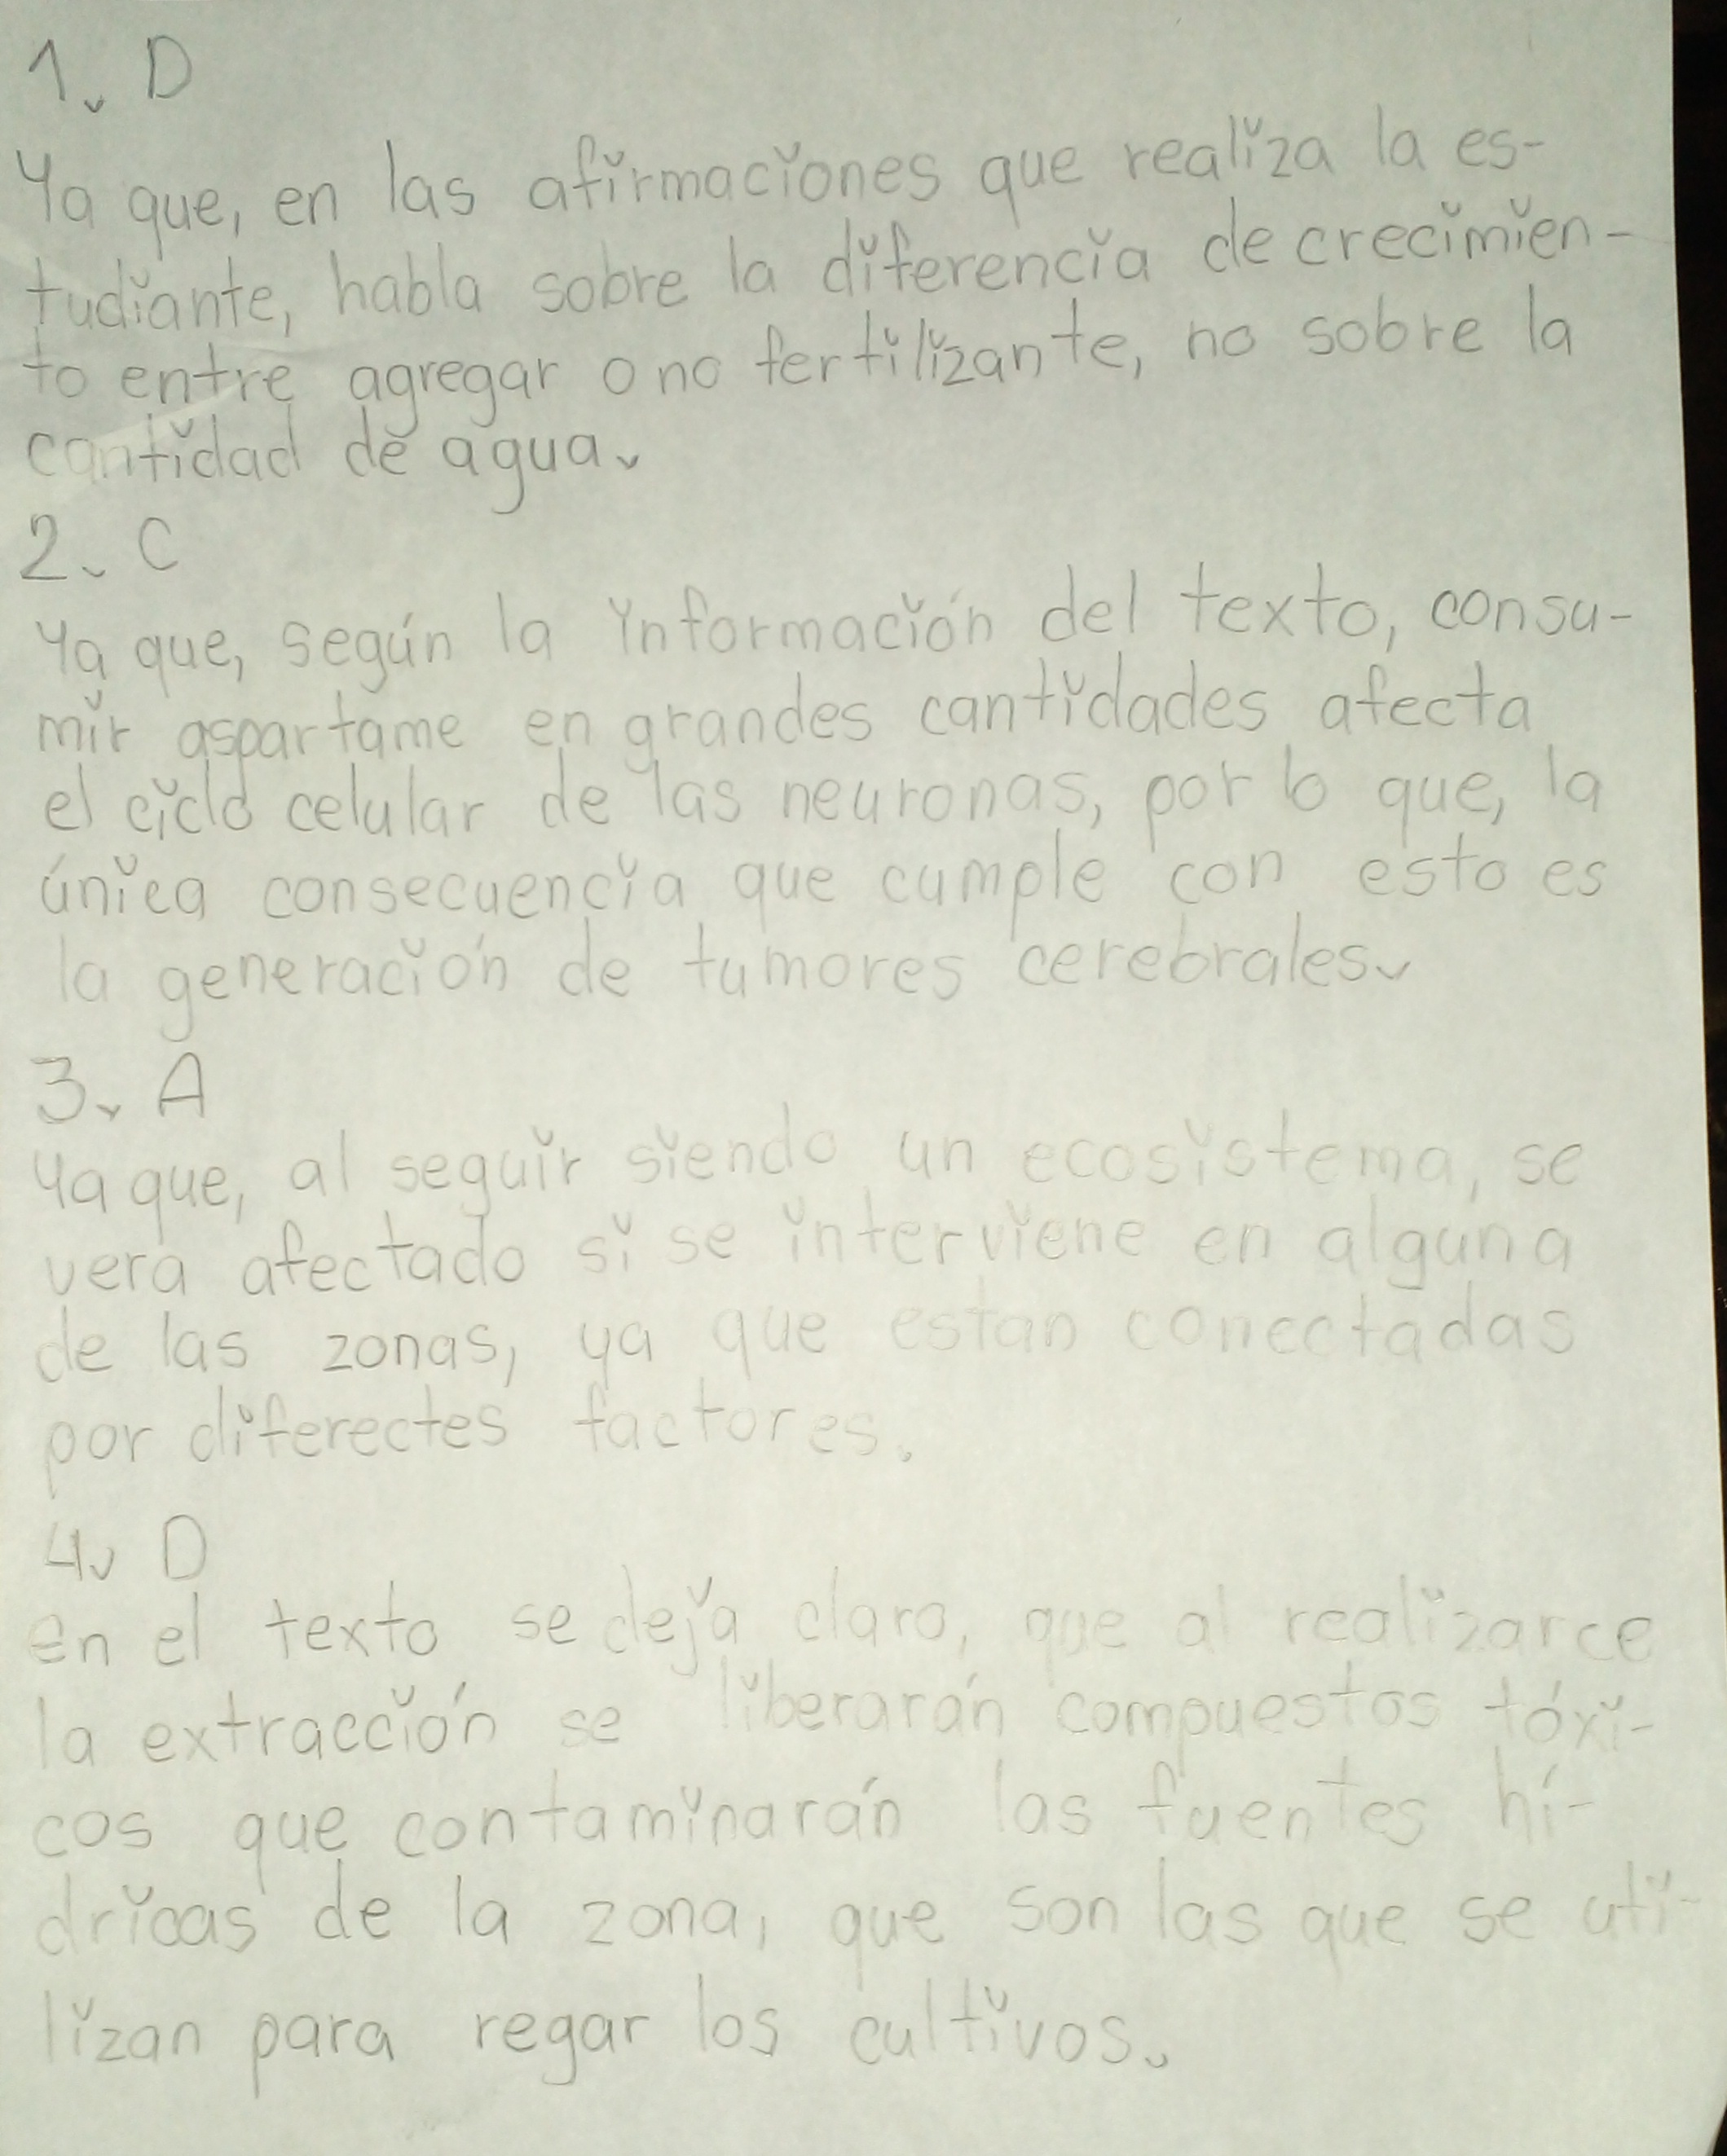 1. D
Ya que, en las afirmaciones que realiza la es-
tudiante, habla sobre la diferencia de crecimien-
to entre agregar o no fertilizante, no sobre la
cantidad de agua.
2. C
Ya que, según la información del texto, consu-
mir aspartame en grandes cantidades afecta
el ciclo celular de las neuronas, por lo que, la
única consecuencia que cumple con esto es
la generación de tumores cerebrales.
3. A
Ya que, al seguir siendo un ecosistema, se
vera afectado si se interviene en alguna
de las zonas, ya que estan conectadas
por diferectes factores.
4. D
en el texto se deja claro, que al realizarce
la extracción se liberarán compuestos tóxi-
cos que contaminarán las fuentes hí-
dricas de la zona, que son las que se uti-
lizan para regar los cultivos.